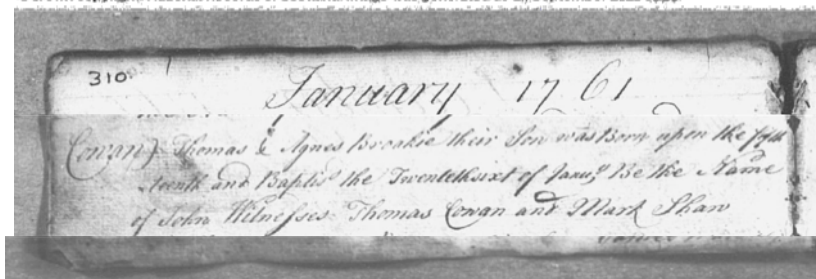 310
January 1761
Cowan} Thomas & Agnes Broakie their Son was Born upon the fifth
teenth and Baptisd the Twentethsixt of Janury Be the Name
of John Witnesses Thomas Cowan and Mark Shaw